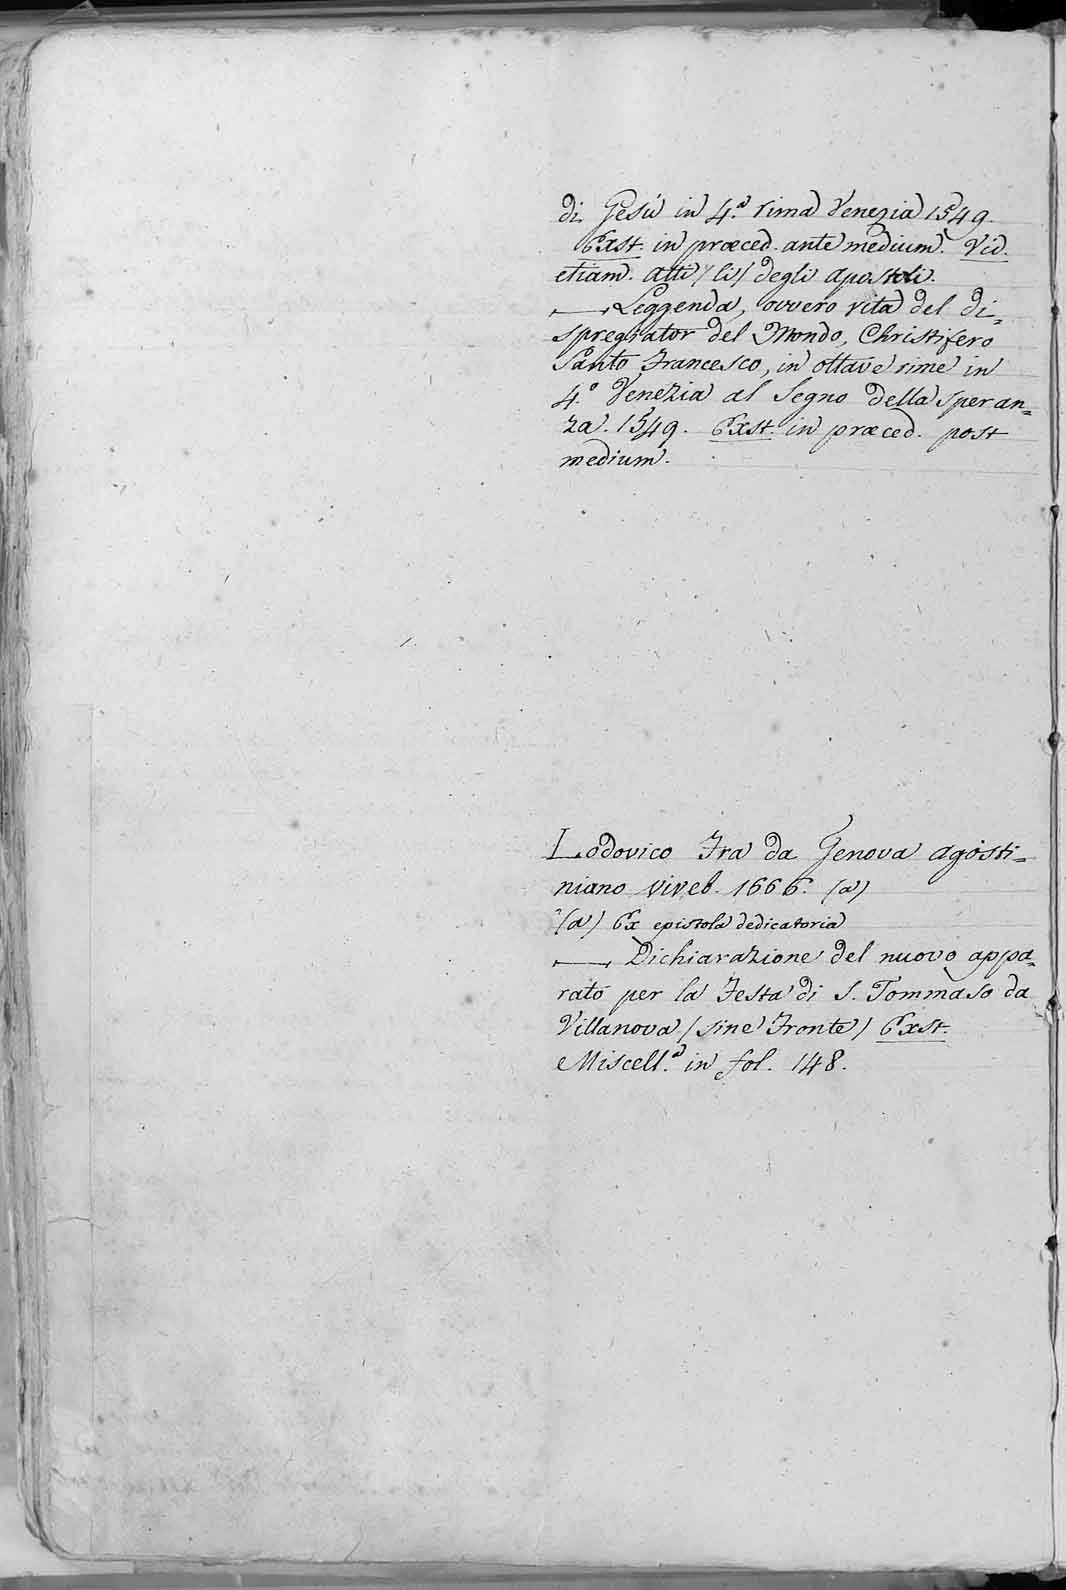 di Gesù in 4.ª rima Venezia 1549.
Exst. in præced. ante medium. Vid.
etiam. Atti (li) degli apostoli.
— Leggenda, ovvero vita del di=
spregiator del Mondo, Christifero
Santo Francesco, in ottave rime in
4.º Venezia al Segno della speran=
za. 1549. Exst. in præced. post
medium.
Lodovico Fra da Genova agosti=
niano viveb. 1666. (a)
(a) Ex epistola dedicatoria
— Dichiarazione del nuovo appa=
rato per la Festa di S. Tommaso da
Villanova (sine Fronte) Exst.
Miscell.ª in fol. 148.